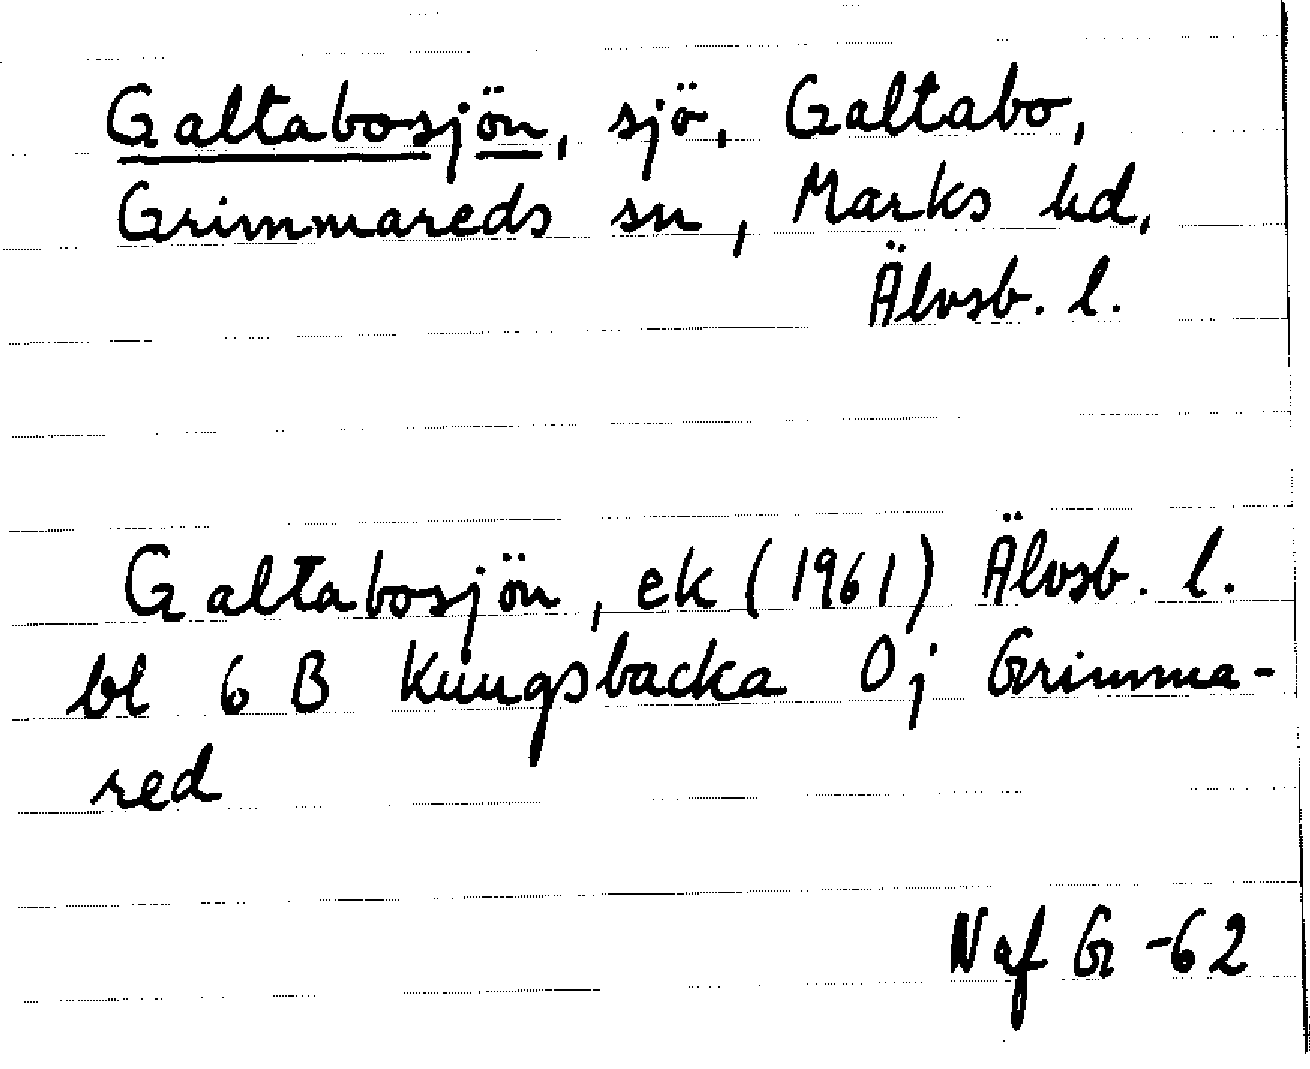 Galtabosjön, sjö, Galtabo,
Grimmareds sn, Marks hd,
Älvsb. l.
Galtabosjön, ek (1961) Älvsb. l.
bl 6 B Kungsbacka 0j Grimma-
red
Naf G -62